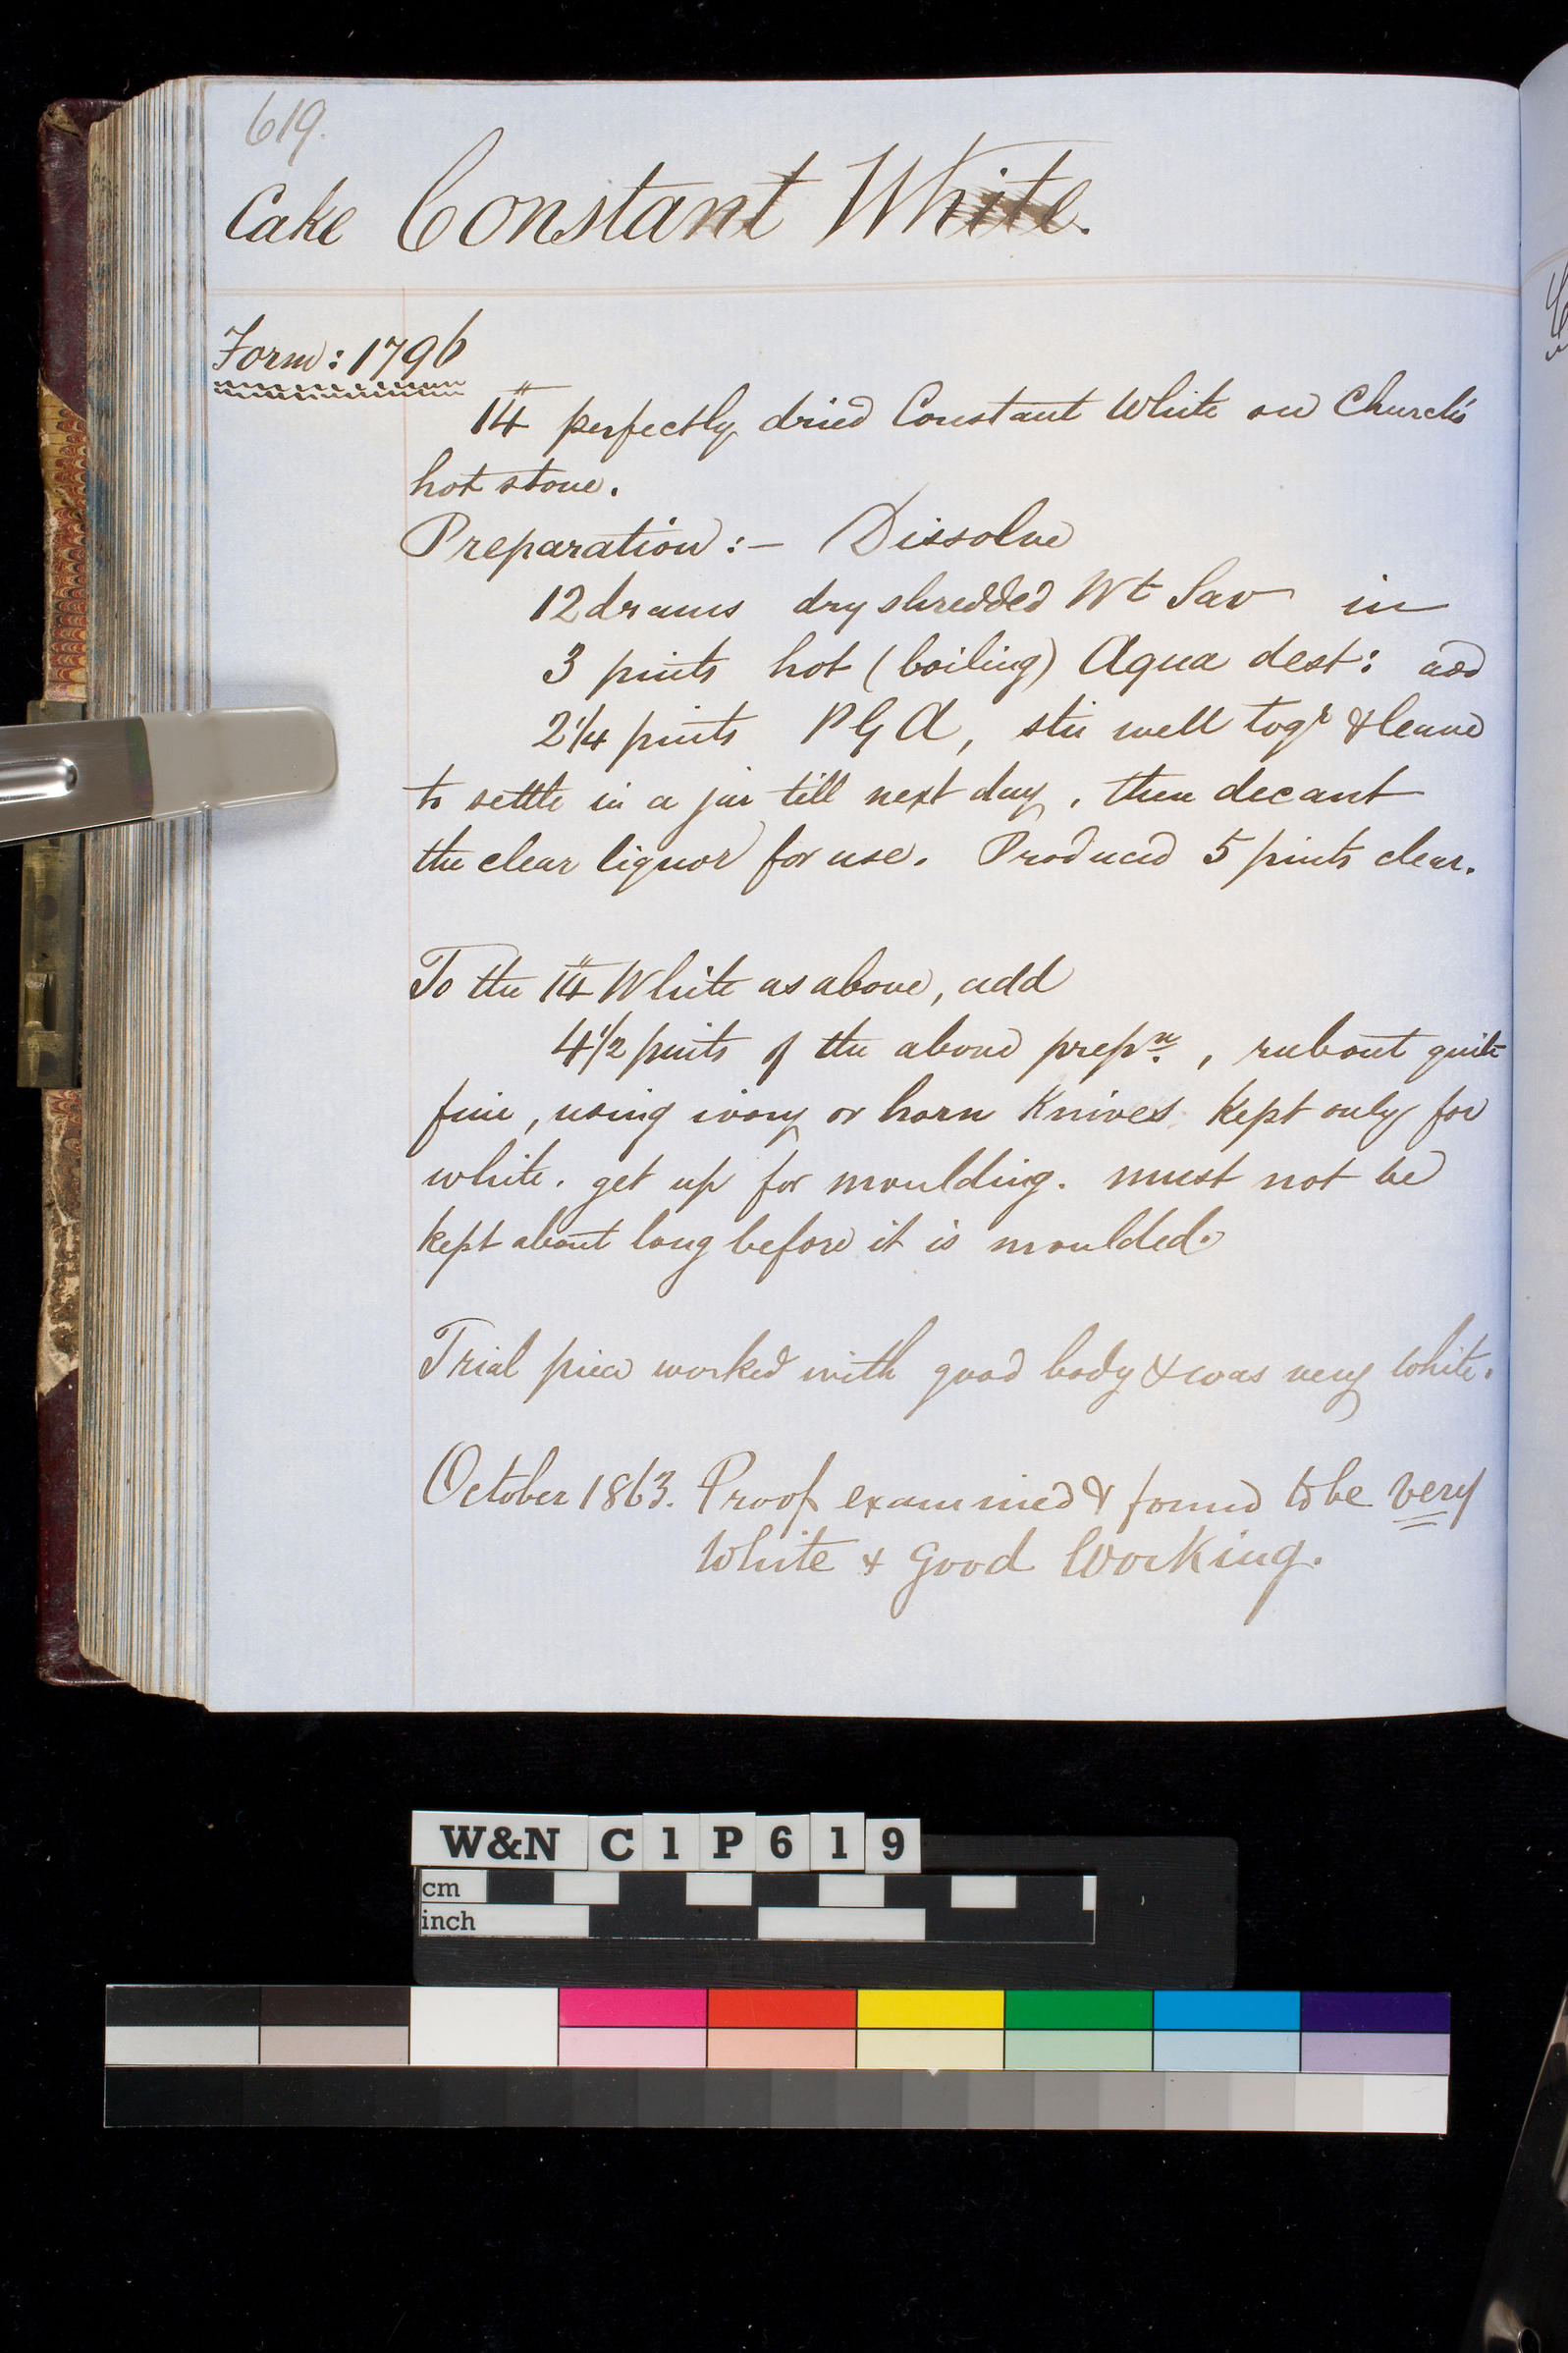 619.
Cake Constant White.
Form: 1796
14" perfectly dried Constant White on Church's
hot stove.
Preparation :— Dissolve
12 drams dry shredded Wt Sav in
3 pints hot (boiling) Aqua dest: add
2 1/4 pints P G A, stir well togr & leave
to settle in a jar till next day, then decant
the clear liquor for use. Produced 5 pints clear.
To the 14" White as above, add
4 1/2 pints of the above prepn. , rub out quite
fine, using ivory or horn Knives Kept only for
white. get up for moulding. must not be
kept about long before it is moulded.
Trial piece worked with good body & was very White.
October 1863. Proof examined & found to be very
White & Good Working.
W&N C1P619
cm
inch